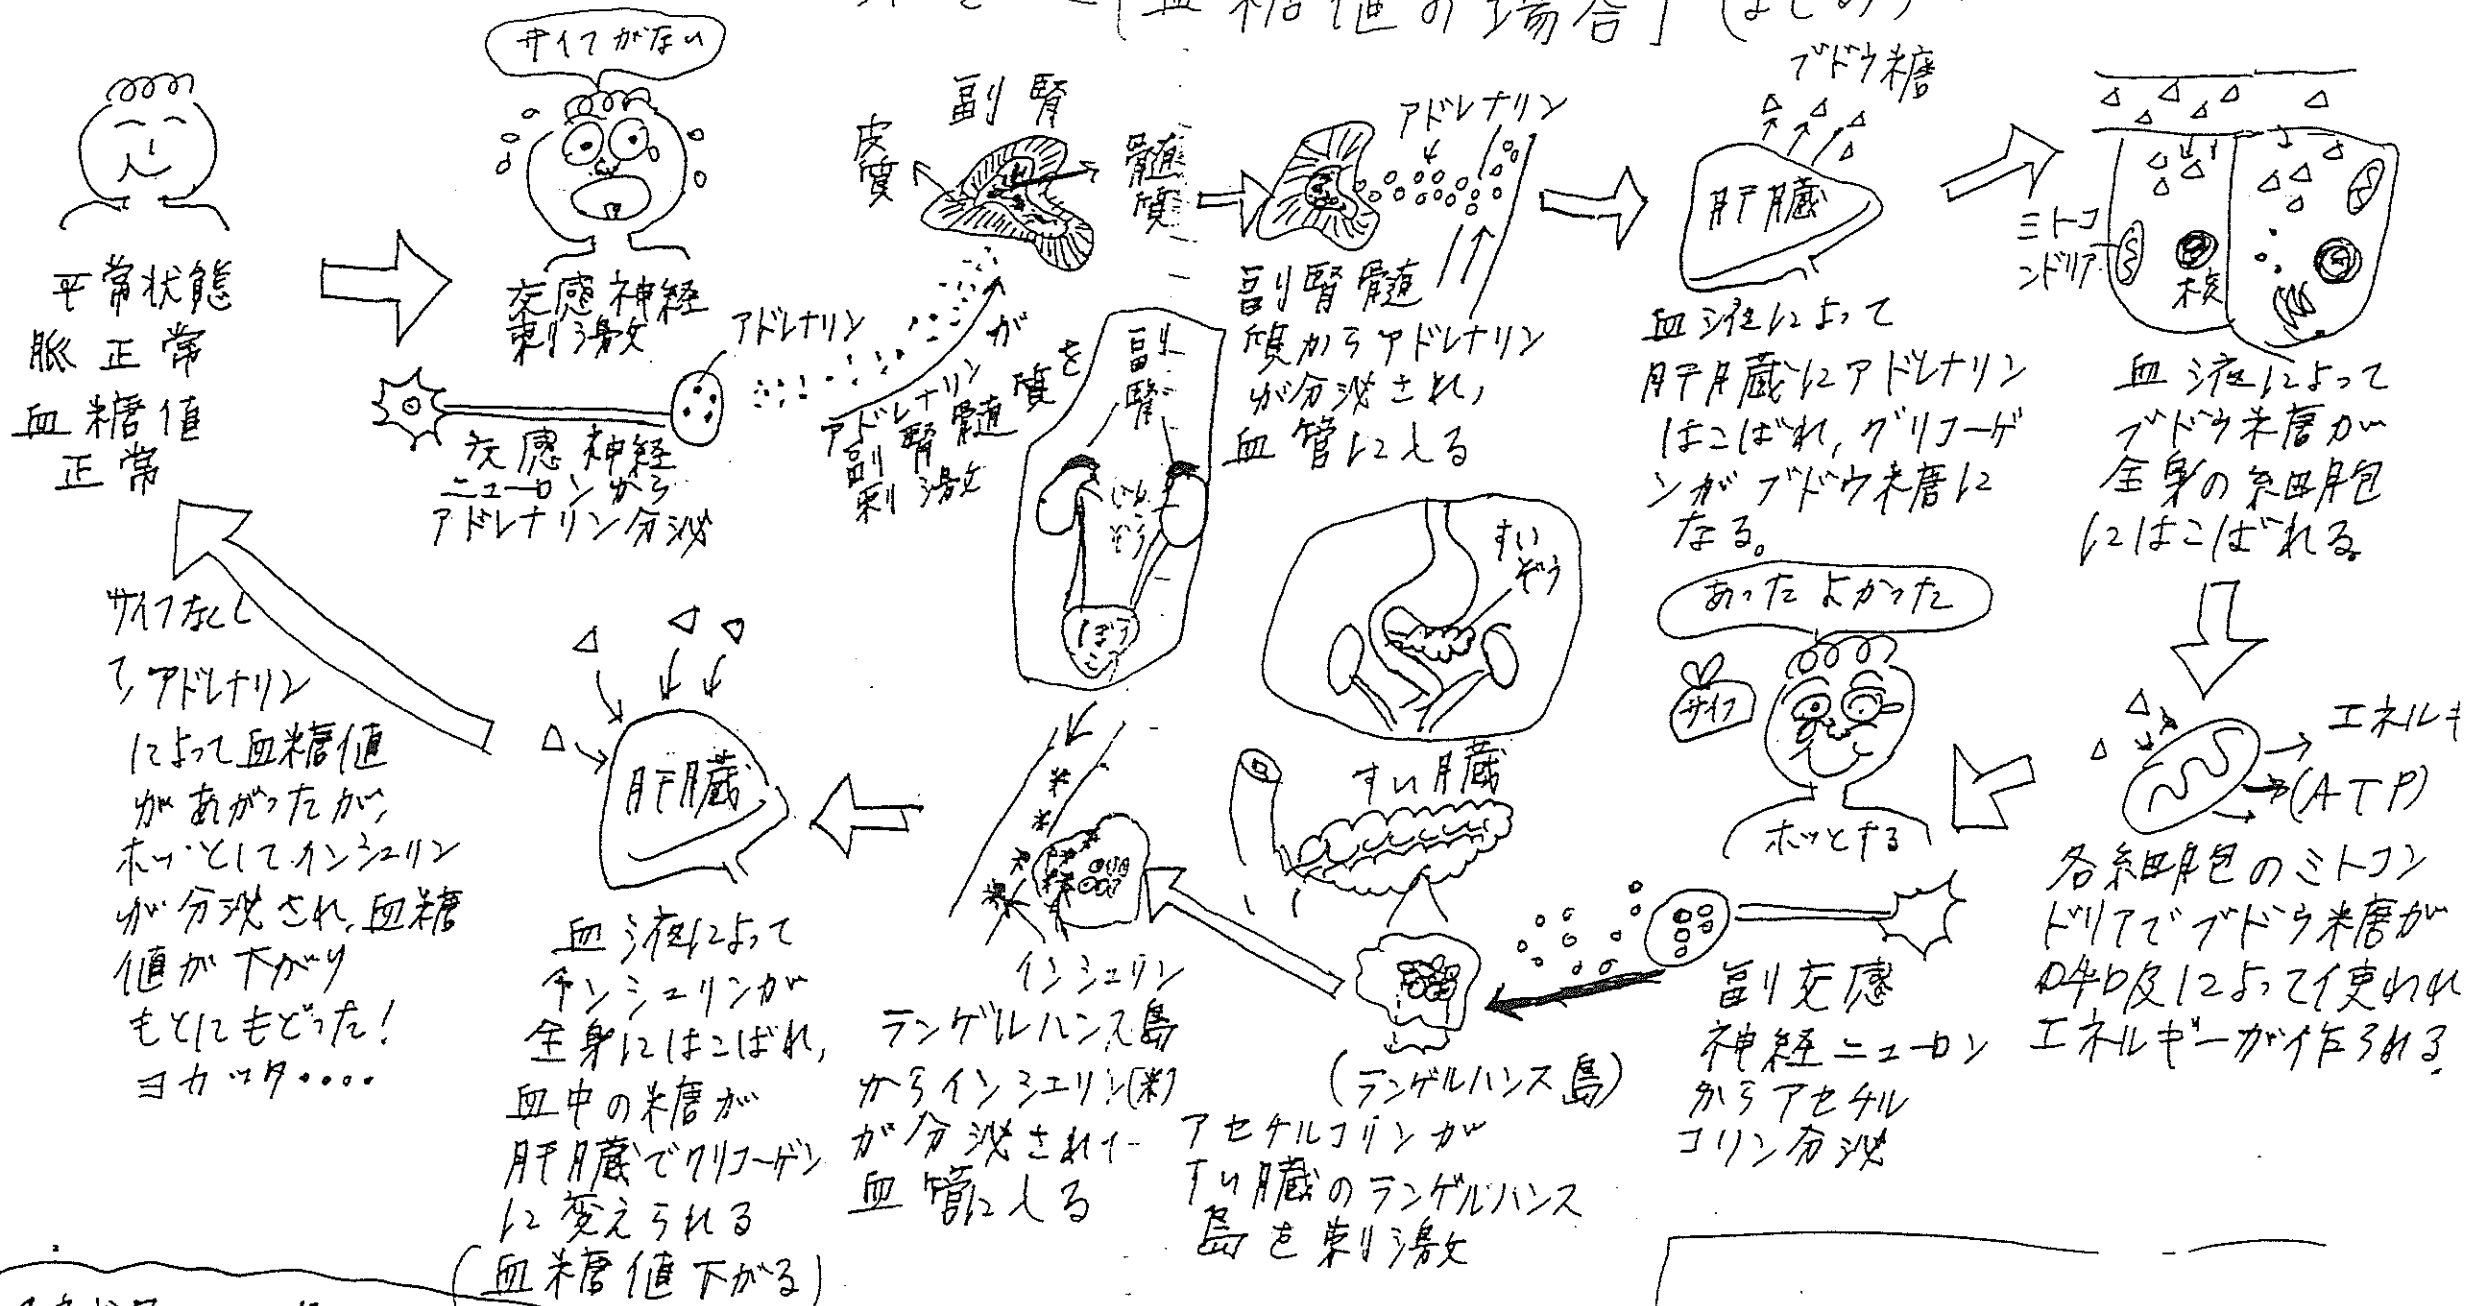 [血糖値の場合]
サイフがない
平常状態
脈 正常
血糖値
正常
交感神経
刺激
アドレナリン
交感神経
ニューロンから
アドレナリン分泌
アドレナリンが
副腎髄質を
刺激
副腎
皮質
髄質
アドレナリン
副腎髄
質からアドレナリン
が分泌され,
血管に入る
副腎
じんぞう
ぼうこう
ブドウ糖
肝臓
血液によって
肝臓にアドレナリン
はこばれ,グリコーゲ
ンがブドウ糖に
なる。
ミトコ
ンドリア
核
血液によって
ブドウ糖が
全身の細胞
にはこばれる。
エネルギ
(ATP)
各細胞のミトコン
ドリアでブドウ糖が
呼吸によって使われ
エネルギーが作られる.
あったよかった
サイフ
ホッとする
副交感
神経ニューロン
からアセチル
コリン分泌
すい
ぞう
すい臓
(ランゲルハンス島)
アセチルコリンが
すい臓のランゲルハンス
島を刺激
インシュリン
ランゲルハンス島
からインシュリン(米)
が分泌されて
血管に入る
肝臓
血液によって
インシュリンが
全身にはこばれ,
血中の糖が
肝臓でグリコーゲン
に変えられる
(血糖値下がる)
サイフなくし
て,アドレナリン
によって血糖値
があがったが,
ホッとしてインシュリン
が分泌され,血糖
値が下がり
もとにもどった!
ヨカッタ・・・・